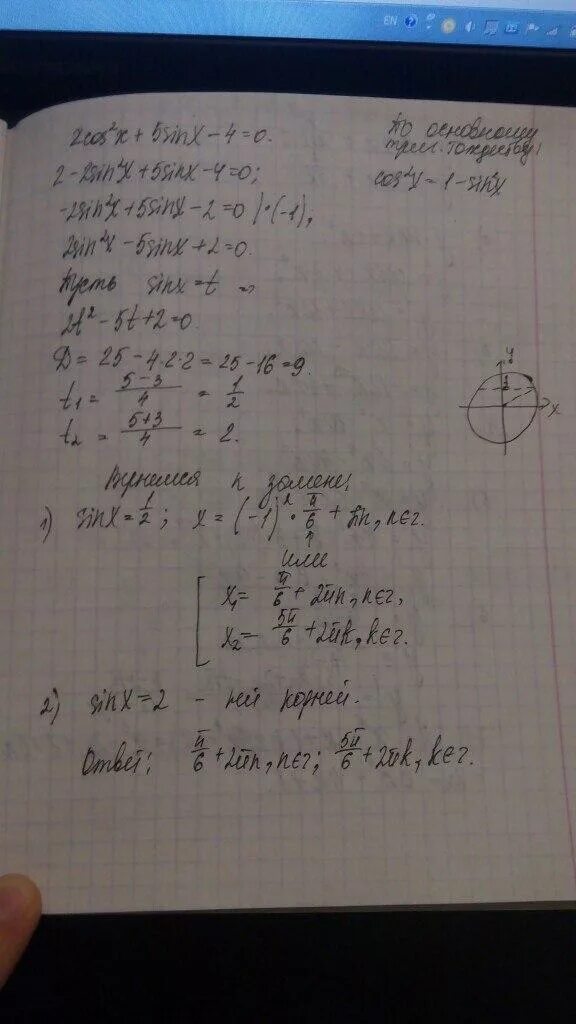 EN
2cos²x + 5sinx - 4 = 0.
По основному
триг. тождеству!
cos²x = 1 - sin²x
2 - 2sin²x + 5sinx - 4 = 0;
-2sin²x + 5sinx - 2 = 0 | · (-1);
2sin²x - 5sinx + 2 = 0.
Пусть sinx = t ⇒
2t² - 5t + 2 = 0.
D = 25 - 4·2·2 = 25 - 16 = 9.
t₁ = (5-3)/4 = 1/2
t₂ = (5+3)/4 = 2.
y
1/2
x
Вернемся к замене:
1) sinx = 1/2; x = (-1)ⁿ · π/6 + πn, n∈z.
или
x₁ = π/6 + 2πn, n∈z,
x₂ = 5π/6 + 2πk, k∈z.
2) sinx = 2 - нет корней.
Ответ: π/6 + 2πn, n∈z; 5π/6 + 2πk, k∈z.